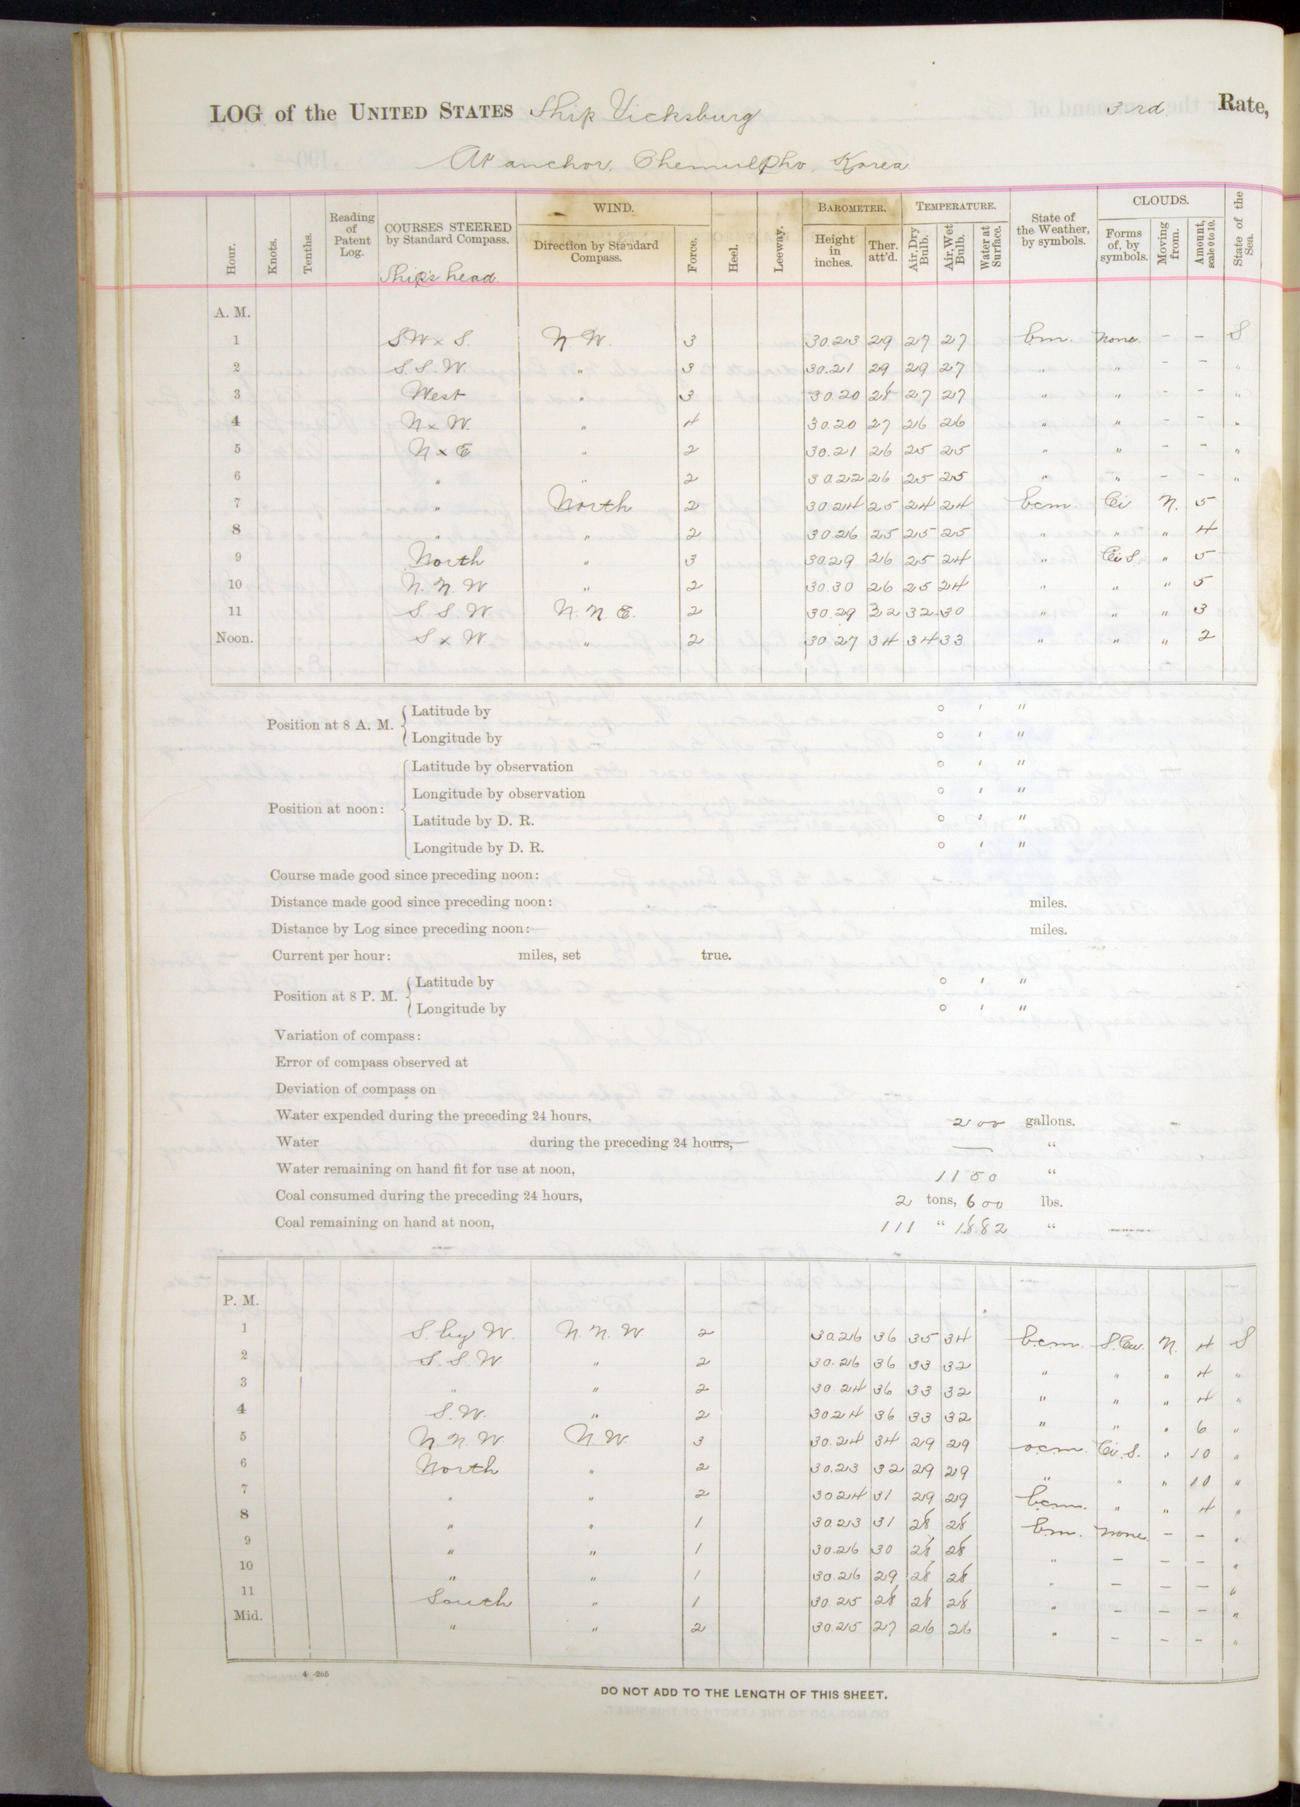 LOG of the UNITED STATES Ship Vicksburg 3rd Rate,
At anchor, Chemulpho, Korea
Hour. Knots. Tenths. Reading of Patent Log. COURSES STEERED by Standard Compass. WIND. Direction by Standard Compass. Force. Heel. Leeway. BAROMETER. Height in inches. Ther. att'd. TEMPERATURE. Air, Dry Bulb. Air, Wet Bulb. Water at Surface. State of the Weather, by symbols. CLOUDS. Forms of, by symbols. Moving from. Amount, scale 0 to 10. State of the Sea.
Ship's head.
A. M.
1 SW x S. N W. 3 30.23 29 27 27 bm. none - - S
2 S.S.W. " 3 30.21 29 29 27 " " - - "
3 West " 3 30.20 28 27 27 " " - - "
4 N x W. " 4 30.20 27 26 26 " " - - "
5 N x E " 2 30.21 26 25 25 " " - - "
6 " " 2 30.22 26 25 25 " " - - "
7 " North 2 30.24 25 24 24 bcm Ci N. 5
8 " " 2 30.26 25 25 25 " " " 4
9 North " 3 30.29 26 25 24 " Ci S. " 5
10 N. N. W " 2 30.30 26 25 24 " " " 5
11 S. S. W. N. N. E. 2 30.29 32 32 30 " " " 3
Noon. S x W. " 2 30.27 34 34 33 " " " 2
Position at 8 A. M. Latitude by ° ' "
Longitude by ° ' "
Position at noon: Latitude by observation ° ' "
Longitude by observation ° ' "
Latitude by D. R. ° ' "
Longitude by D. R. ° ' "
Course made good since preceding noon:
Distance made good since preceding noon: miles.
Distance by Log since preceding noon: miles.
Current per hour: miles, set true.
Position at 8 P. M. Latitude by ° ' "
Longitude by ° ' "
Variation of compass:
Error of compass observed at
Deviation of compass on
Water expended during the preceding 24 hours, 200 gallons.
Water during the preceding 24 hours, — "
Water remaining on hand fit for use at noon, 1150 "
Coal consumed during the preceding 24 hours, 2 tons, 600 lbs.
Coal remaining on hand at noon, 111 " 1882 "
P. M.
1 S. by W. N. N. W 2 30.26 36 35 34 bcm. S.Cu. N. 4 S
2 S. S. W " 2 30.26 36 33 32 " " " 4 "
3 " " 2 30.24 36 33 32 " " " 4 "
4 S. W. " 2 30.24 36 33 32 " " " 6 "
5 N N W N. W. 3 30.24 34 29 29 ocm. Ci. S. " 10 "
6 North " 2 30.23 32 29 29 " " " 10 "
7 " " 2 30.24 31 29 29 bcm. " " 4 "
8 " " 1 30.23 31 28 28 bm. none - - "
9 " " 1 30.26 30 28 28 " - - - "
10 " " 1 30.26 29 28 28 " - - - "
11 South " 1 30.25 28 28 28 " - - - "
Mid. " " 2 30.25 27 26 26 " - - - "
4-265
DO NOT ADD TO THE LENGTH OF THIS SHEET.